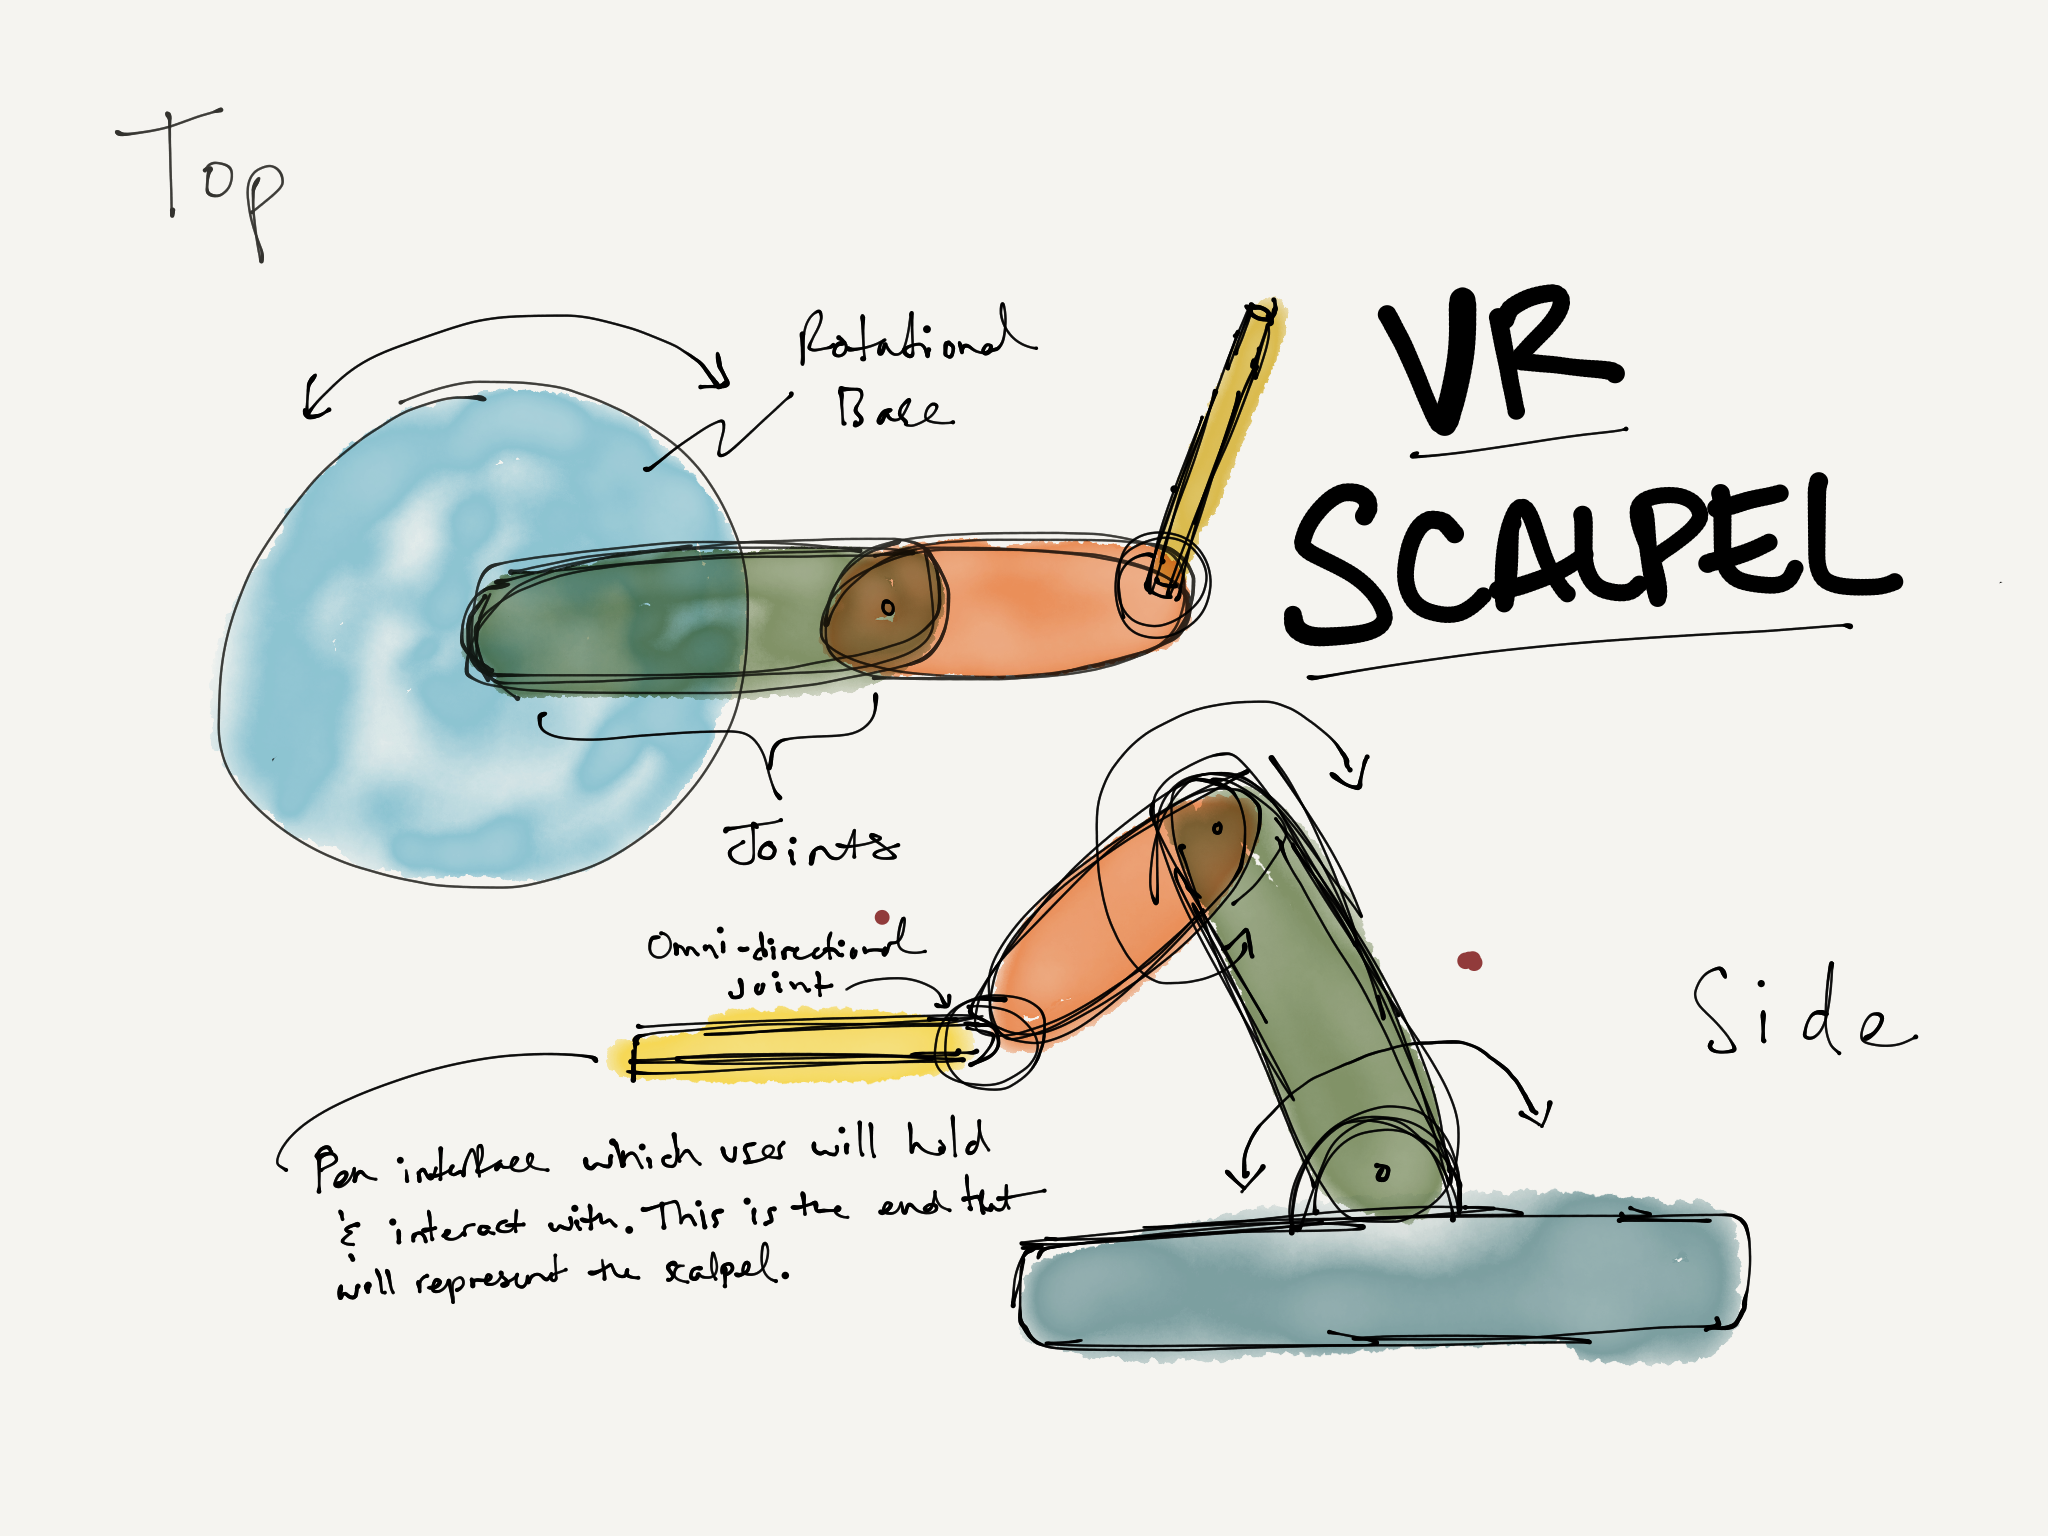 Top
Rotational
Base
VR
SCALPEL
Joints
Omni-directional
joint
Side
Pen interface which user will hold
& interact with. This is the end that
will represent the scalpel.